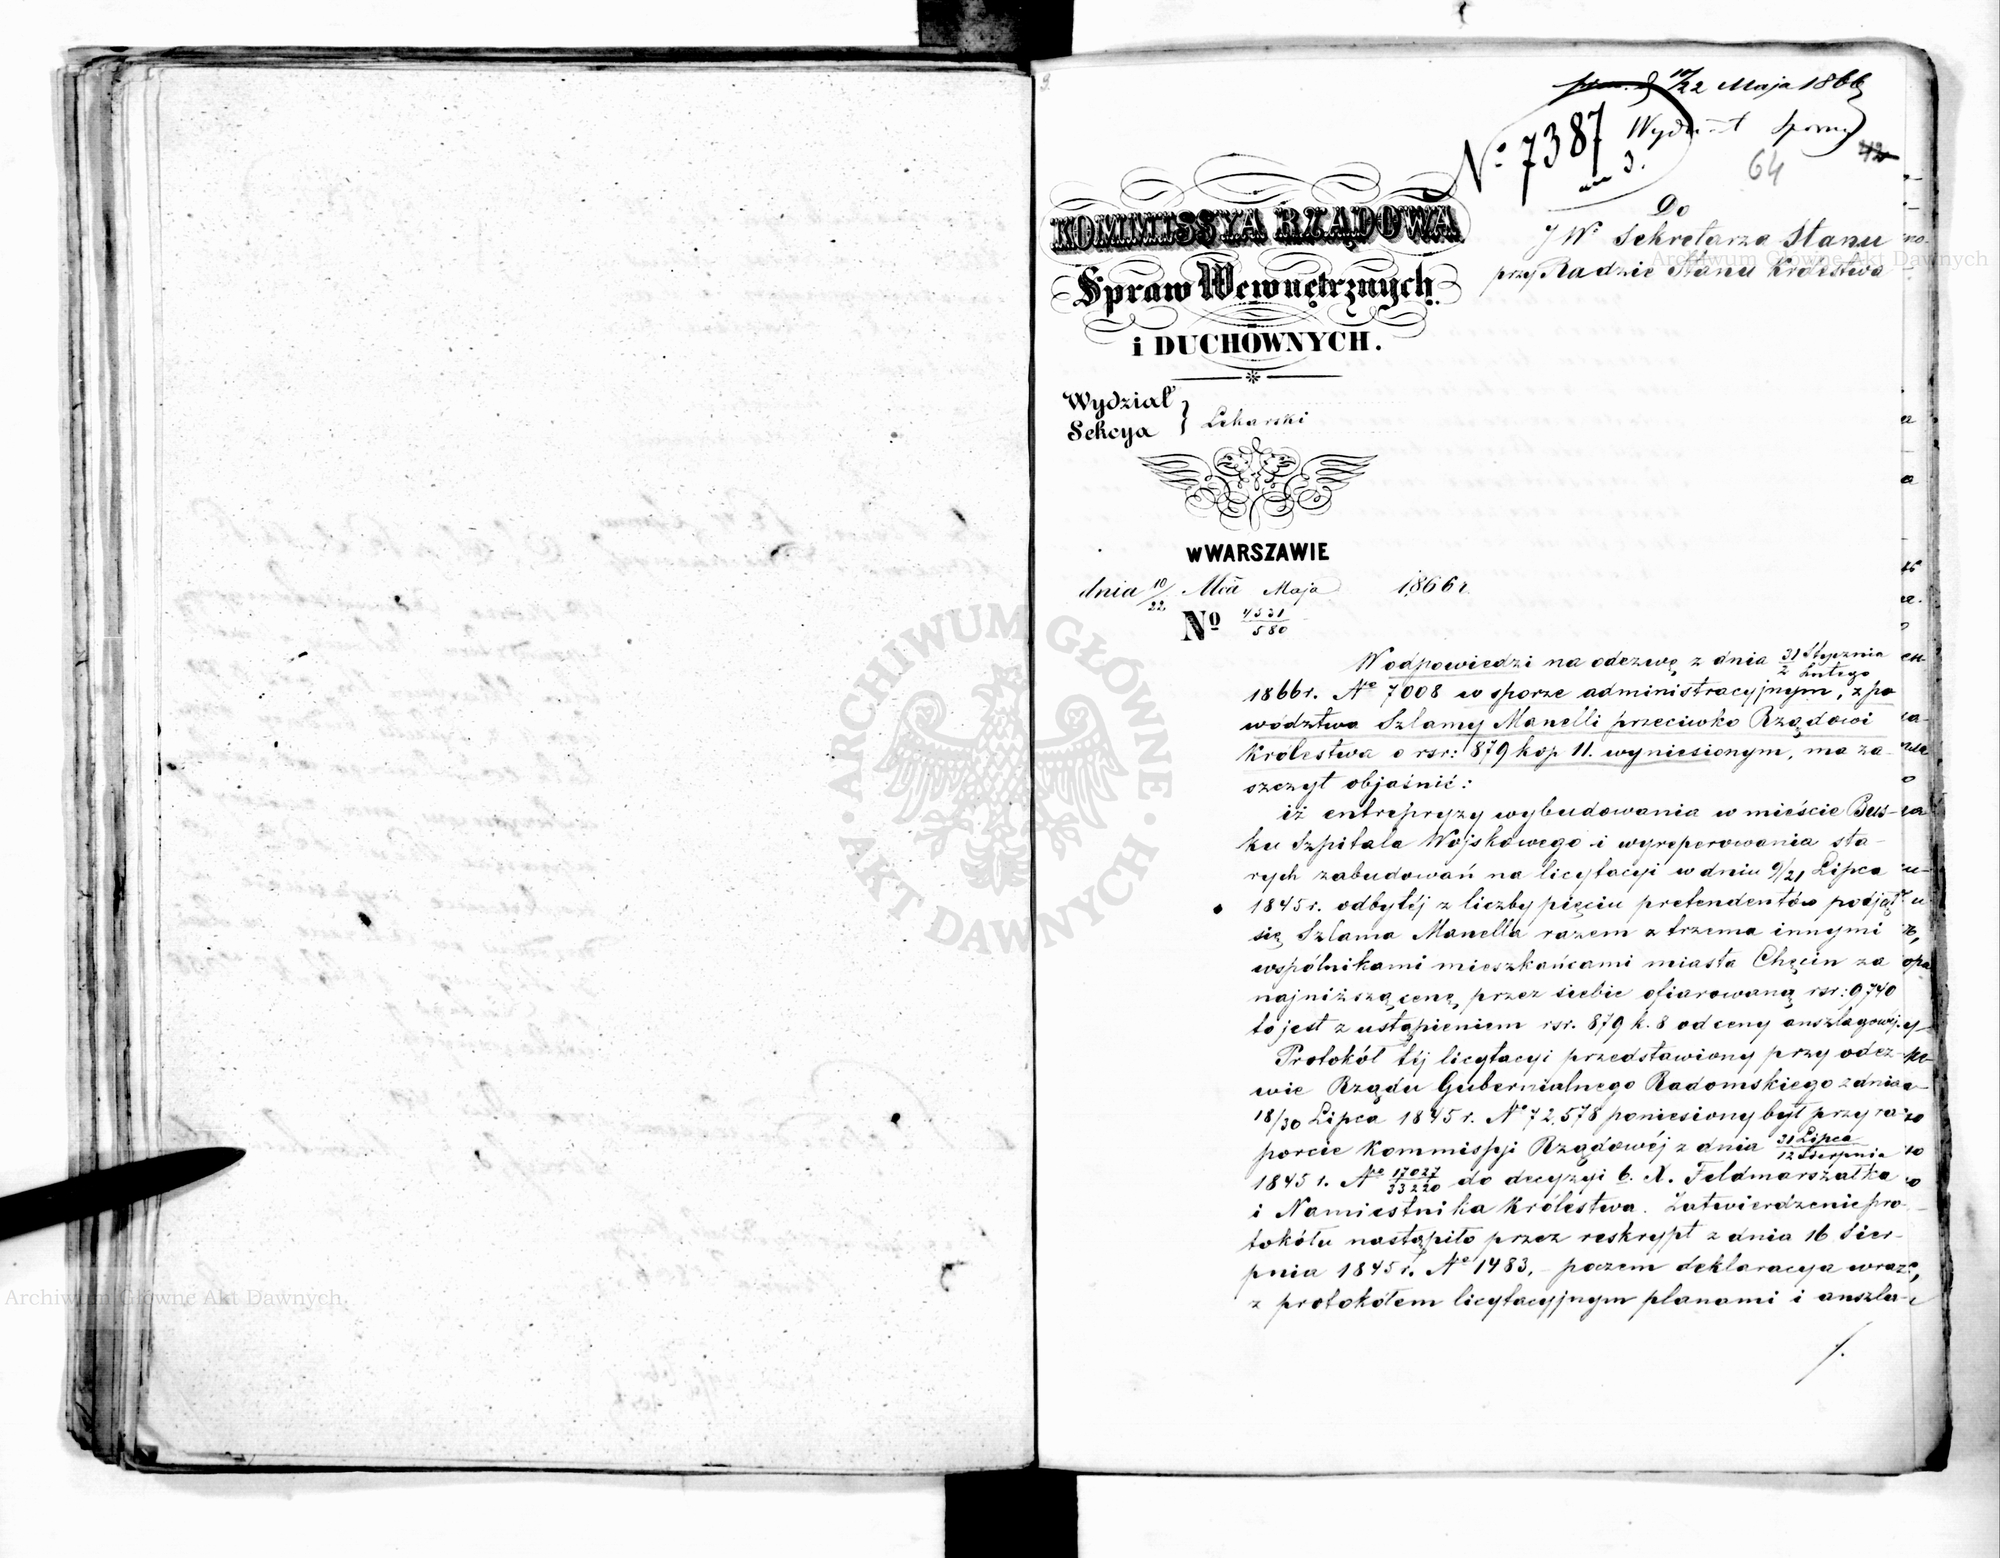 10/22 Maja 1866
Wydział Sporny
Nº 7387
64
Do
JW Sekretarza Stanu
przy Radzie Stanu Królestwa
KOMMISSYA RZĄDOWA
Spraw Wewnętrznych
i DUCHOWNYCH.
Wydział
Sekcya
Lekarski
w WARSZAWIE
dnia 10/22 Mca Maja 1866 r
Nº 4531/580
W odpowiedzi na odezwę z dnia 31 Stycznia/2 Lutego
1866 r. Nº 7008 w sporze administracyjnym, z po
wództwa Szlamy Manelli przeciwko Rządowi
Królestwa o rsr: 879 kop 11. wyniesionym, ma za-
szczyt objaśnić:
iż entrepryzy wybudowania w mieście Bus-
ku Szpitala Wojskowego i wyreperowania sta-
rych zabudowań na licytacyi w dniu 9/21 Lipca
1845 r. odbytéj z liczby pięciu pretendentów podjął
się Szlama Manella razem z trzema innymi
wspólnikami mieszkańcami miasta Chęcin za
najniższą cenę, przez siebie ofiarowaną rsr: 9740
to jest z ustąpieniem rsr. 879 k. 8 od ceny anszlagowej.
Protokół téj licytacyi przedstawiony przy odez-
wie Rządu Gubernialnego Radomskiego z dnia
18/30 Lipca 1845 r. Nº 72,578 poniesiony był przy ra-
porcie Kommissyi Rządowéj z dnia 31 Lipca/12 Sierpnia
1845 r. Nº 17027/33220 do decyzyi b. X. Feldmarszałka
i Namiestnika Królestwa. Zatwierdzenie pro-
tokółu nastąpiło przez reskrypt z dnia 16 Sier-
pnia 1845 r. Nº 1483, – poczem deklaracya wraz
z protokółem licytacyjnym planami i anszla-
ARCHIWUM GŁÓWNE AKT DAWNYCH
Archiwum Główne Akt Dawnych
Archiwum Główne Akt Dawnych